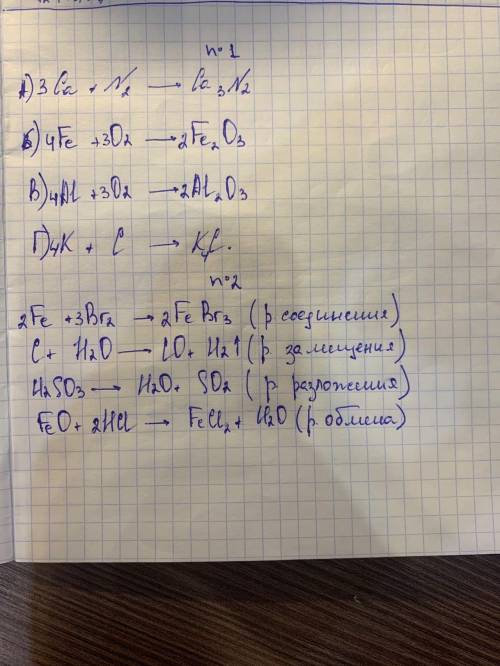 n°1
А) 3Ca + N2 → Ca3N2
Б) 4Fe + 3O2 → 2Fe2O3
В) 4Al + 3O2 → 2Al2O3
Г) 4K + C → K4C.
n°2
2Fe + 3Br2 → 2FeBr3 (р. соединения)
C + H2O → CO + H2↑ (р. замещения)
H2SO3 → H2O + SO2 (р. разложения)
FeO + 2HCl → FeCl2 + H2O (р. обмена)